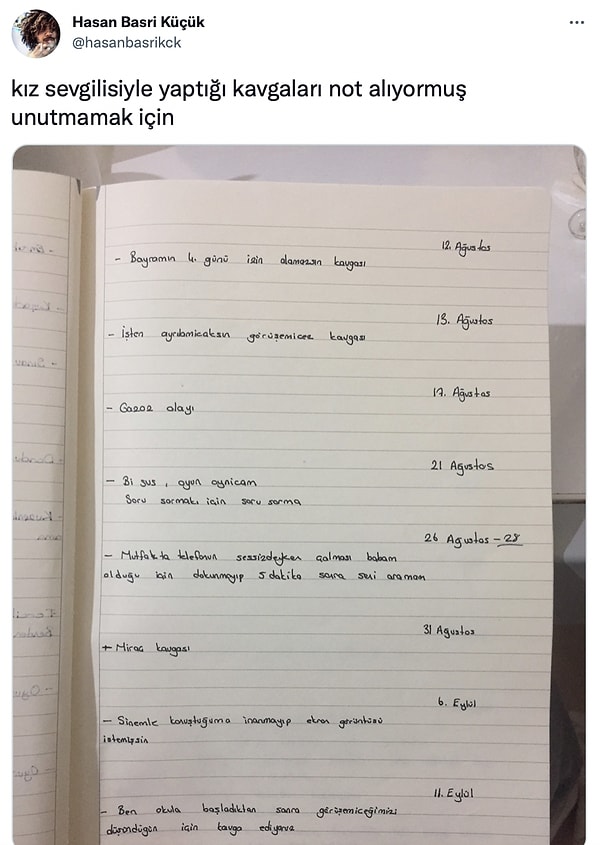 Hasan Basri Küçük
@hasanbasrikck
kız sevgilisiyle yaptığı kavgaları not alıyormuş
unutmamak için
12. Ağustos
- Bayramın 4. günü izin alamazsın kavgası
13. Ağustos
- İşten ayrılmicaksın görüşemicez kavgası
17. Ağustos
- Gazoz olayı
21 Ağustos
- Bi sus, oyun oynicam
Soru sormak için soru sorma
26 Agustos - 28
- Mutfakta telefonun sessizdeyken çalması babam
olduğu için dokunmayıp 5 dakika sonra seni aramam
31 Agustos
+ Miraç kavgası
6. Eylül
- Sinemle konuştuğuma inanmayıp ekran görüntüsü
istemişsin
11. Eylül
- Ben okula başladıktan sonra görüşemiceğimizi
düşündüğün için kavga ediyoruz